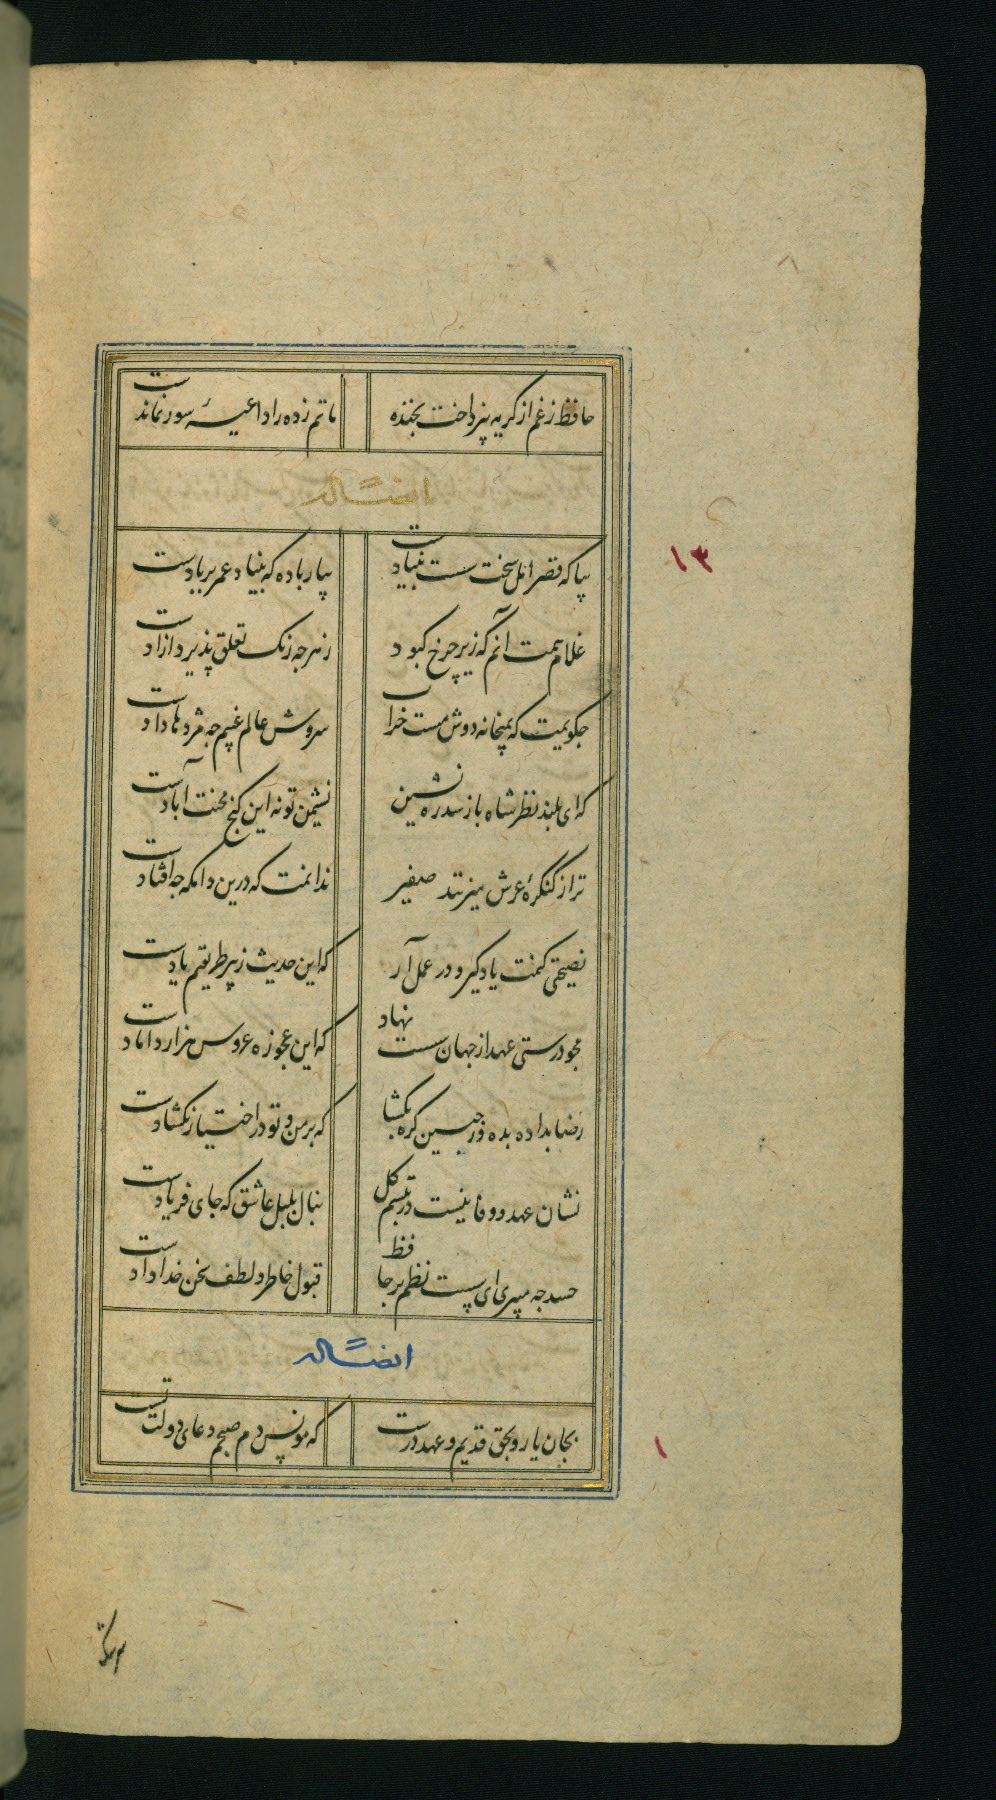 حافظ ز غم از گریه نپرداخت بخنده ماتم زده را داعیهٔ سور نماندست
ایضاً له
بیا که قصر امل سخت سست بنیادست بیار باده که بنیاد عمر بربادست
غلام همت آنم که زیر چرخ کبود ز هرچه رنک تعلق پذیرد ازادست
چکویمت که بمیخانه دوش مست خراب سروش عالم غیبم چه مژدها دادست
که ای بلند نظر شاه باز سدره نشین نشیمن تو نه این کنج محنت آبادست
ترا ز کنکرهٔ عرش میزنند صفیر ندانمت که درین دامکه چه افتادست
نصیحتی کنمت یادکیر و در عمل آر که این حدیث ز پیر طریقتم یادست
مجو درستی عهد از جهان سست نهاد که این عجوزه عروس هزار دامادست
رضا بداده بده وز جبین کره بکشا که بر من و تو در اختیار نکشادست
نشان عهد و وفا نیست در تبسم کل بنال بلبل عاشق که جای فریادست
حسد چه میبری ای سست نظم بر حافظ قبول خاطر و لطف سخن خدادادست
ایضاً له
بجان یار و بحق قدیم و عهد درست که مونس دم صبحم دعای دولتست
۱۳
۱